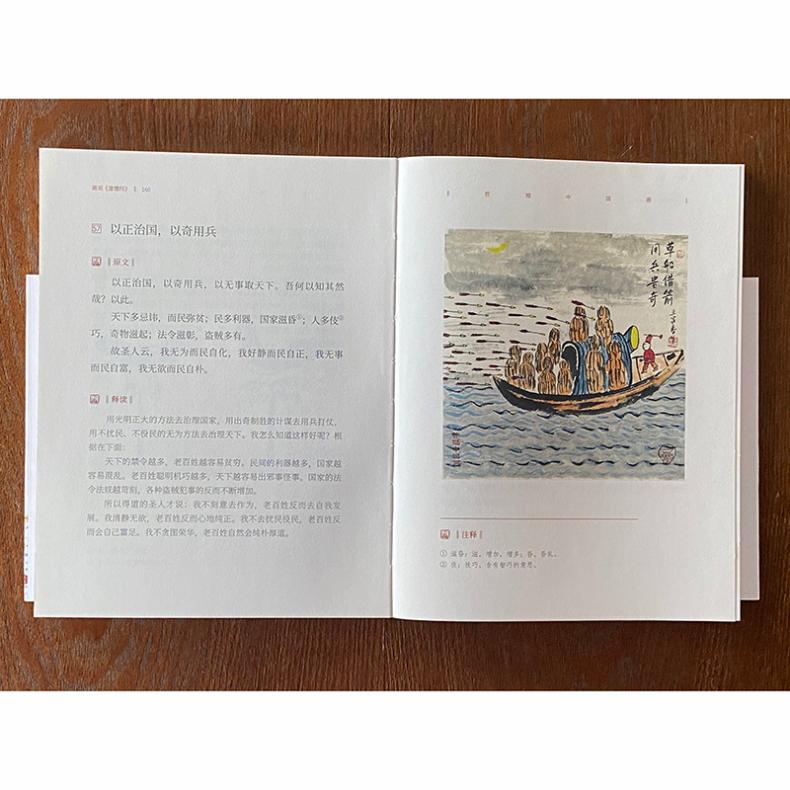 画说《道德经》 | 160
57 以正治国，以奇用兵
原文
以正治国，以奇用兵，以无事取天下。吾何以知其然
哉？以此。
天下多忌讳，而民弥贫；民多利器，国家滋昏①；人多伎②
巧，奇物滋起；法令滋彰，盗贼多有。
故圣人云，我无为而民自化，我好静而民自正，我无事
而民自富，我无欲而民自朴。
释读
用光明正大的方法去治理国家，用出奇制胜的计谋去用兵打仗，
用不扰民、不役民的无为方法去治理天下。我怎么知道这样好呢？根
据在下面：
天下的禁令越多，老百姓越容易贫穷。民间的利器越多，国家越
容易混乱。老百姓聪明机巧越多，天下越容易出邪事怪事。国家的法
令法规越苛刻，各种盗贼犯事的反而不断增加。
所以得道的圣人才说：我不刻意去作为，老百姓反而去自我发
展。我清静无欲，老百姓反而心地纯正。我不去扰民役民，老百姓反
而会自己富足。我不贪图荣华，老百姓自然会纯朴厚道。
哲理中国画
草船借箭
用兵贵奇
注释
① 滋昏：滋，增加，增多；昏，昏乱。
② 伎：技巧，含有智巧的意思。